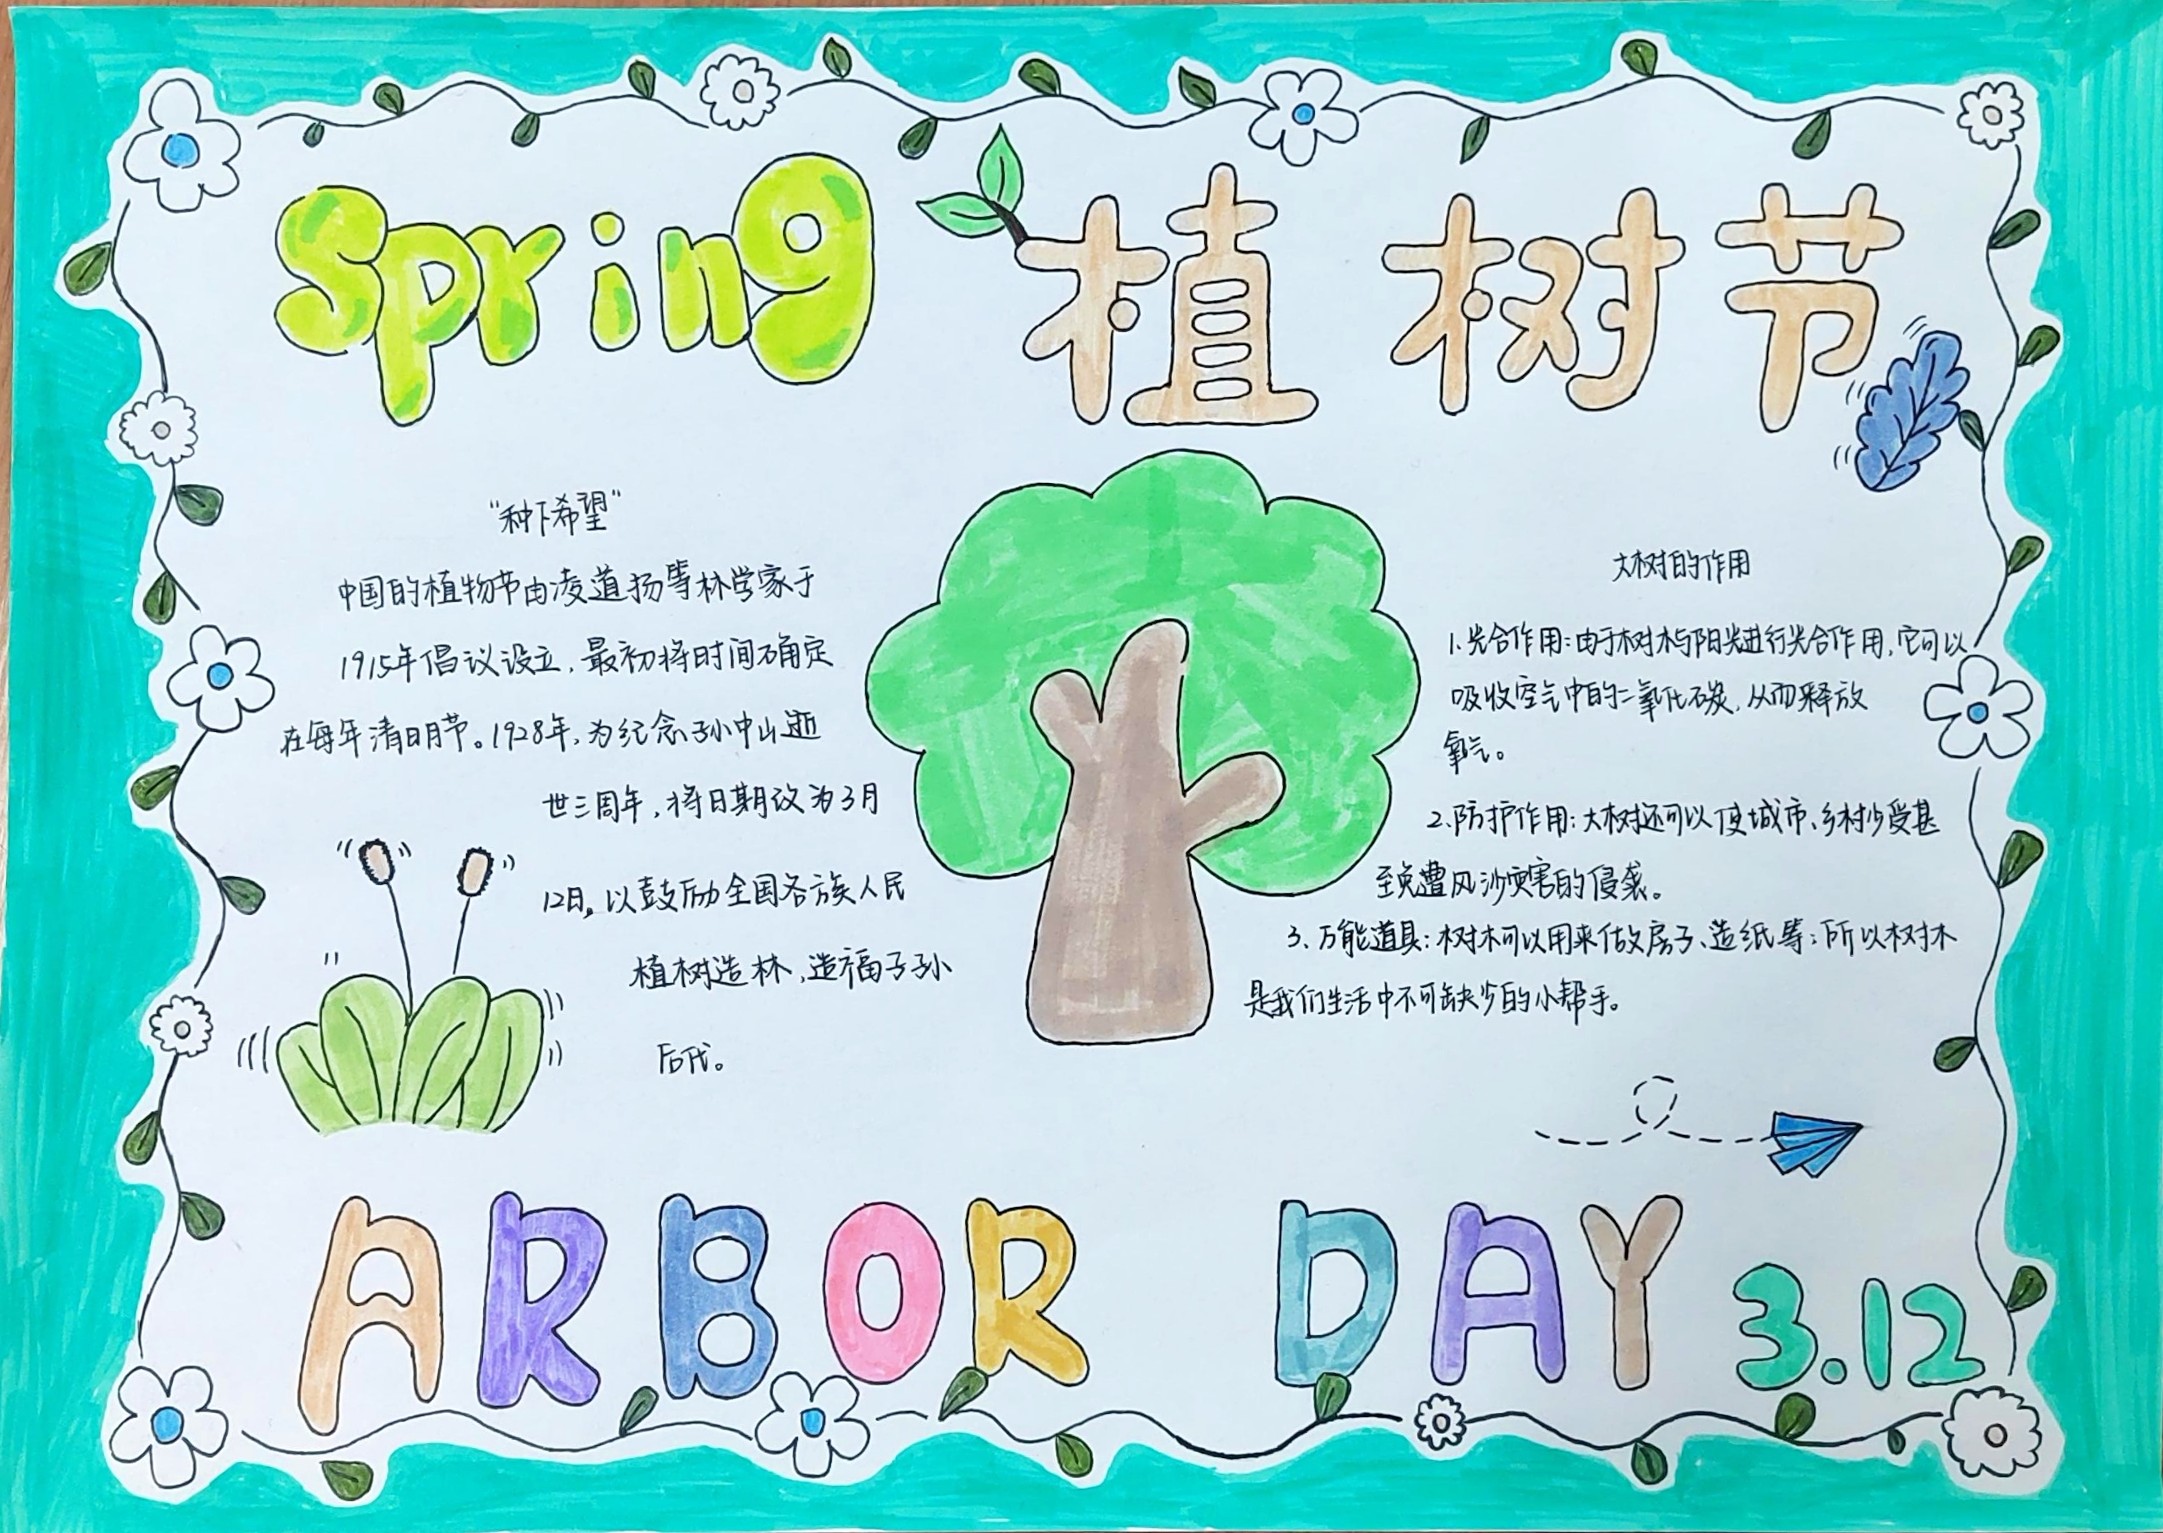 Spring 植树节
“种下希望”
中国的植物节由凌道扬等林学家于
1915年倡议设立，最初将时间确定
在每年清明节。1928年，为纪念孙中山逝
世三周年，将日期改为3月
12日，以鼓励全国各族人民
植树造林，造福子子孙
后代。
大树的作用
1.光合作用：由于树木与阳光进行光合作用，它可以
吸收空气中的二氧化碳，从而释放
氧气。
2.防护作用：大树还可以使城市、乡村少受甚
至免遭风沙灾害的侵袭。
3、万能道具：树木可以用来做房子、造纸等；所以树木
是我们生活中不可缺少的小帮手。
ARBOR DAY 3.12